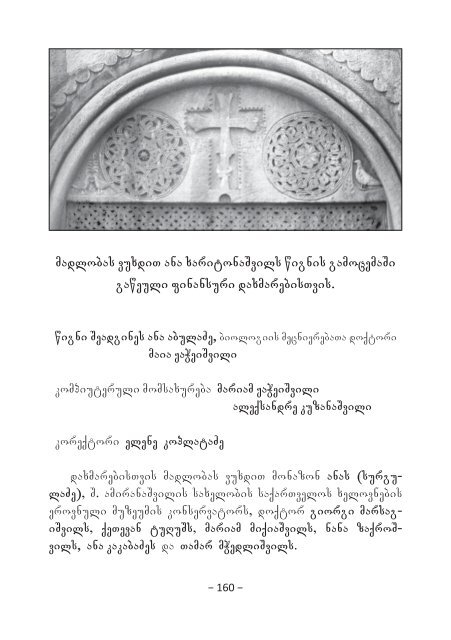 მადლობას ვუხდით ანა ხარიტონაშვილს წიგნის გამოცემაში
გაწეული ფინანსური დახმარებისთვის.
წიგნი შეადგინეს ანა აბულაძე, ბიოლოგიის მეცნიერებათა დოქტორი
მაია ჟაჭეიშვილი
კომპიუტერული მომსახურება მარიამ ჟაჭეიშვილი
ალექსანდრე კუზანაშვილი
კორექტორი ელენე კოპლატაძე
დახმარებისთვის მადლობას ვუხდით მონაზონ ანას (სურგუ-
ლაძე), შ. ამირანაშვილის სახელობის საქართველოს ხელოვნების
ეროვნული მუზეუმის კონსერვატორს, დოქტორ გიორგი მარსაგ-
იშვილს, ქეთევან ტუღუშს, მარიამ მიქიაშვილს, ნანა ზაქროშ-
ვილს, ანა კაკაბაძეს და თამარ მჭედლიშვილს.
– 160 –